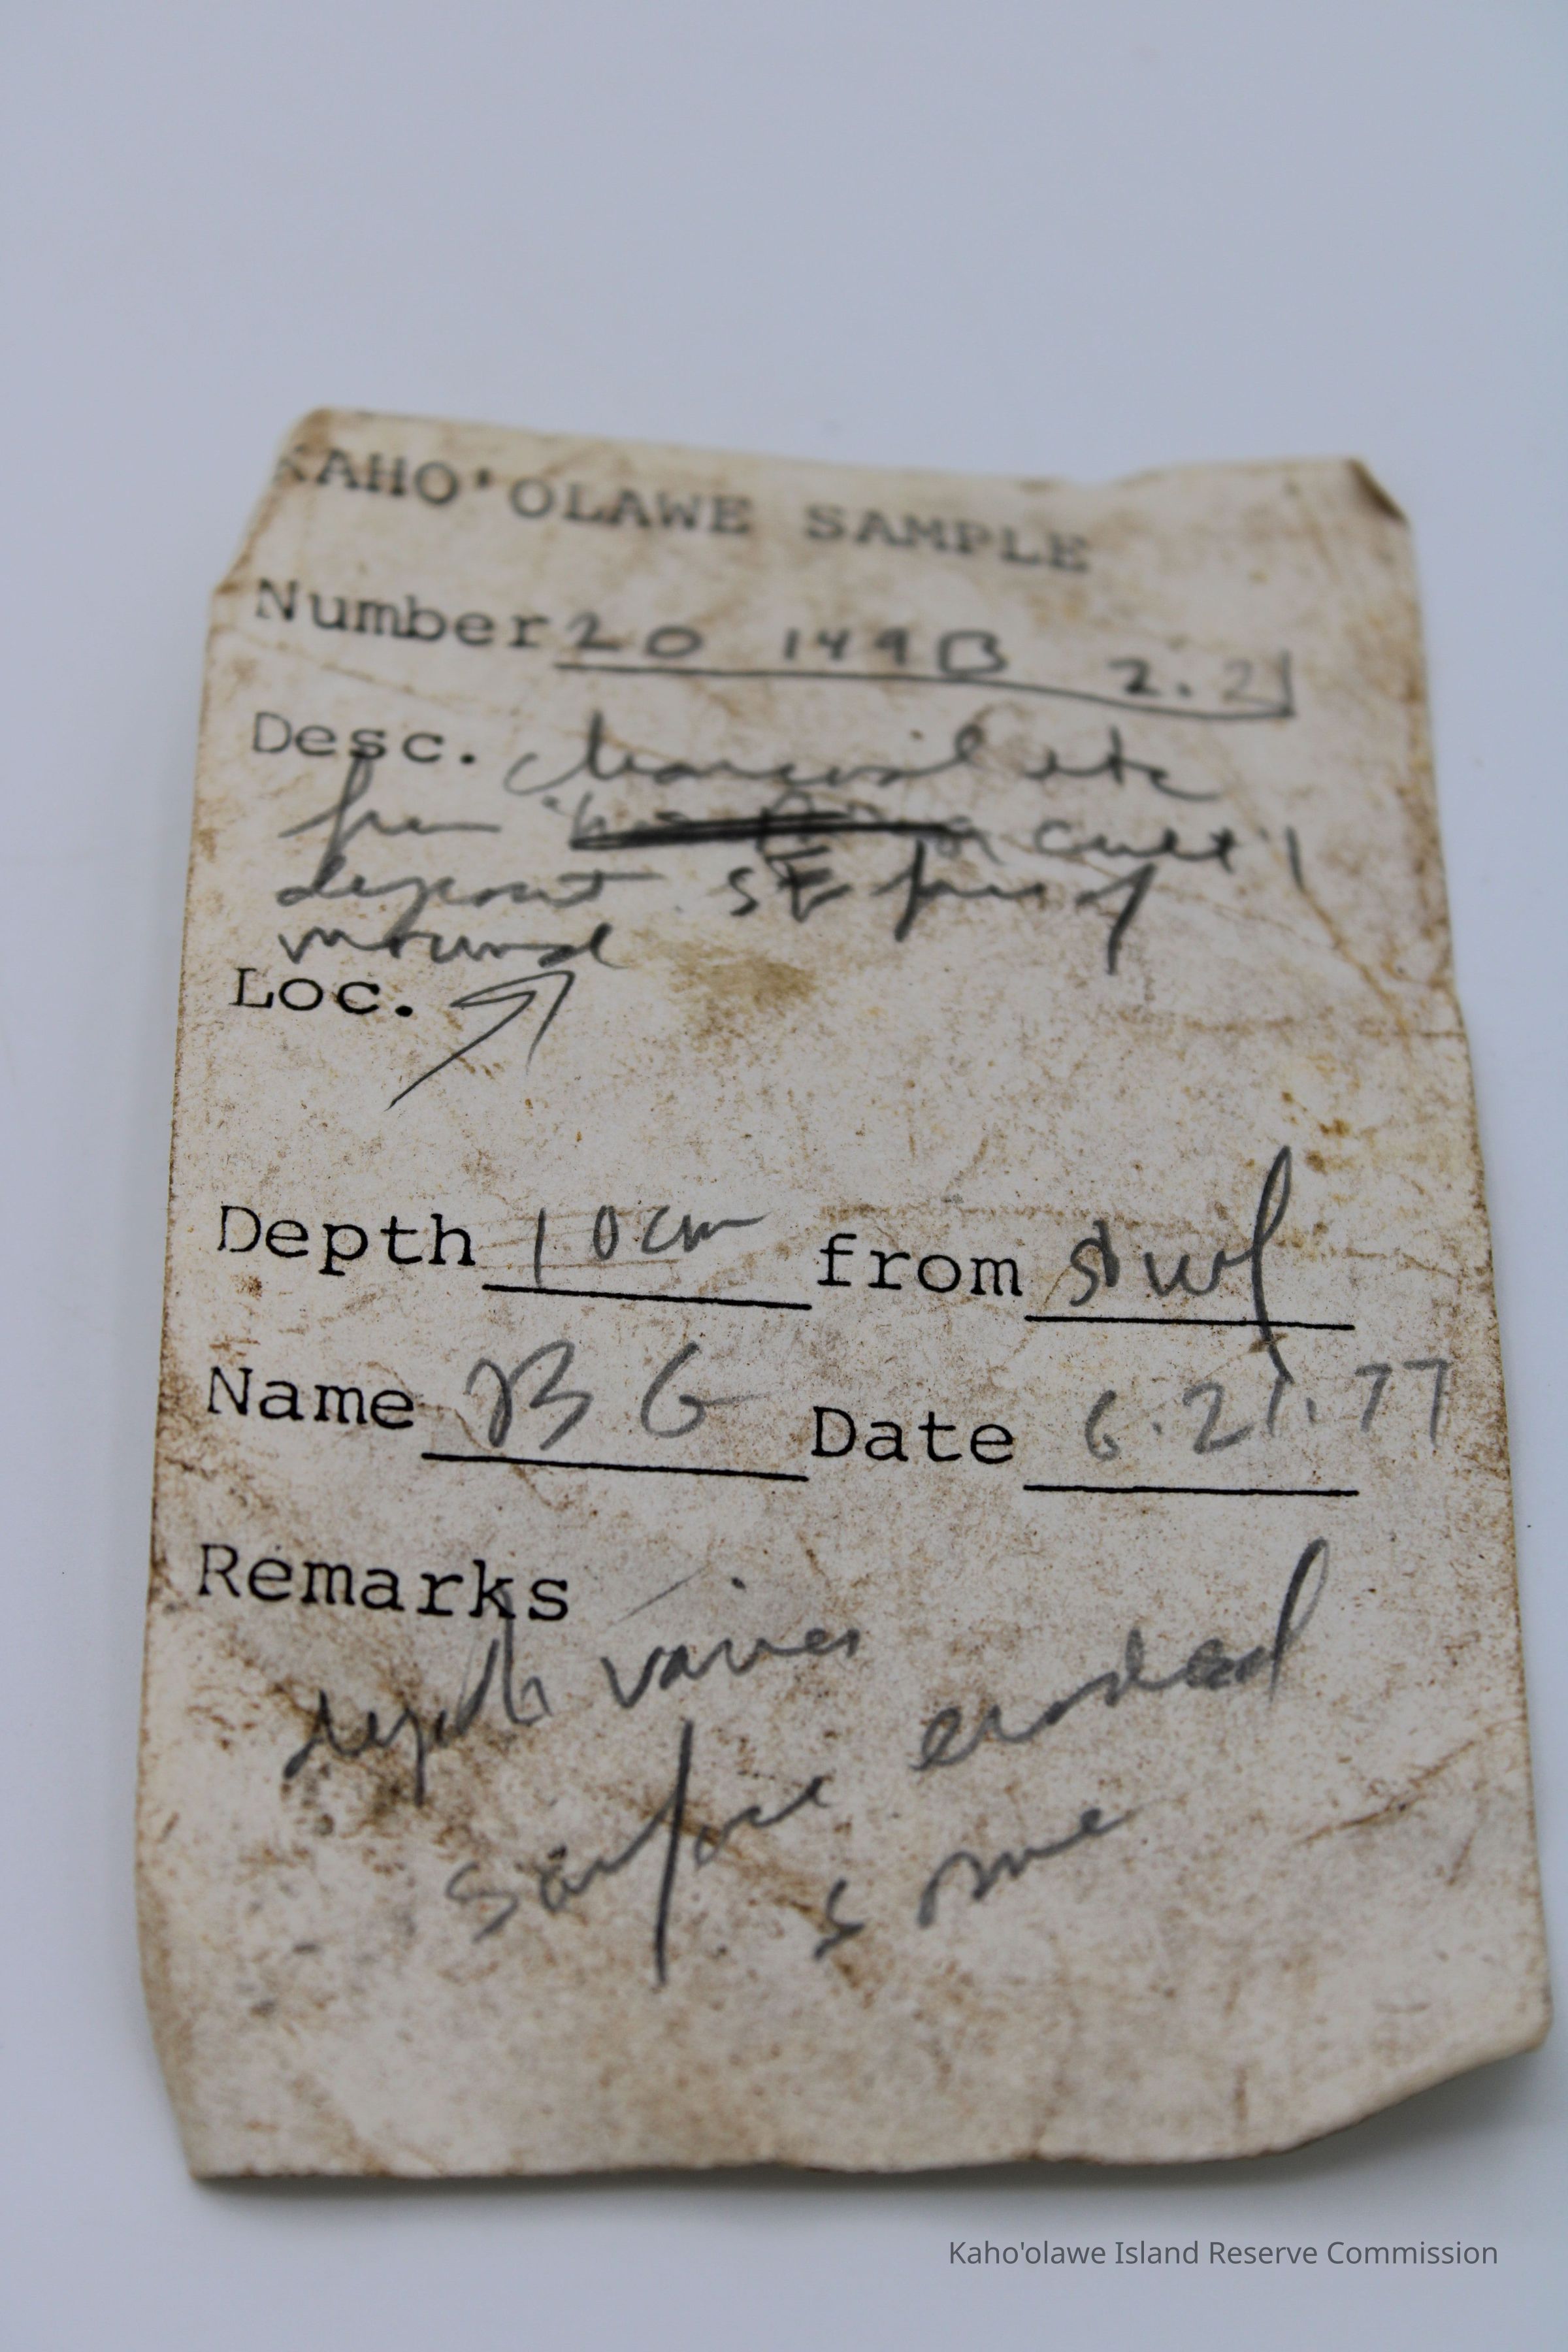 KAHO'OLAWE SAMPLE
Number 20 149B 2.21
Desc. charcoal etc
from cult'l
deposit SE face of
mound
Loc.
Depth 10cm from surf
Name BG Date 6.21.77
Remarks
depth varies
surface eroded
some
Kaho'olawe Island Reserve Commission